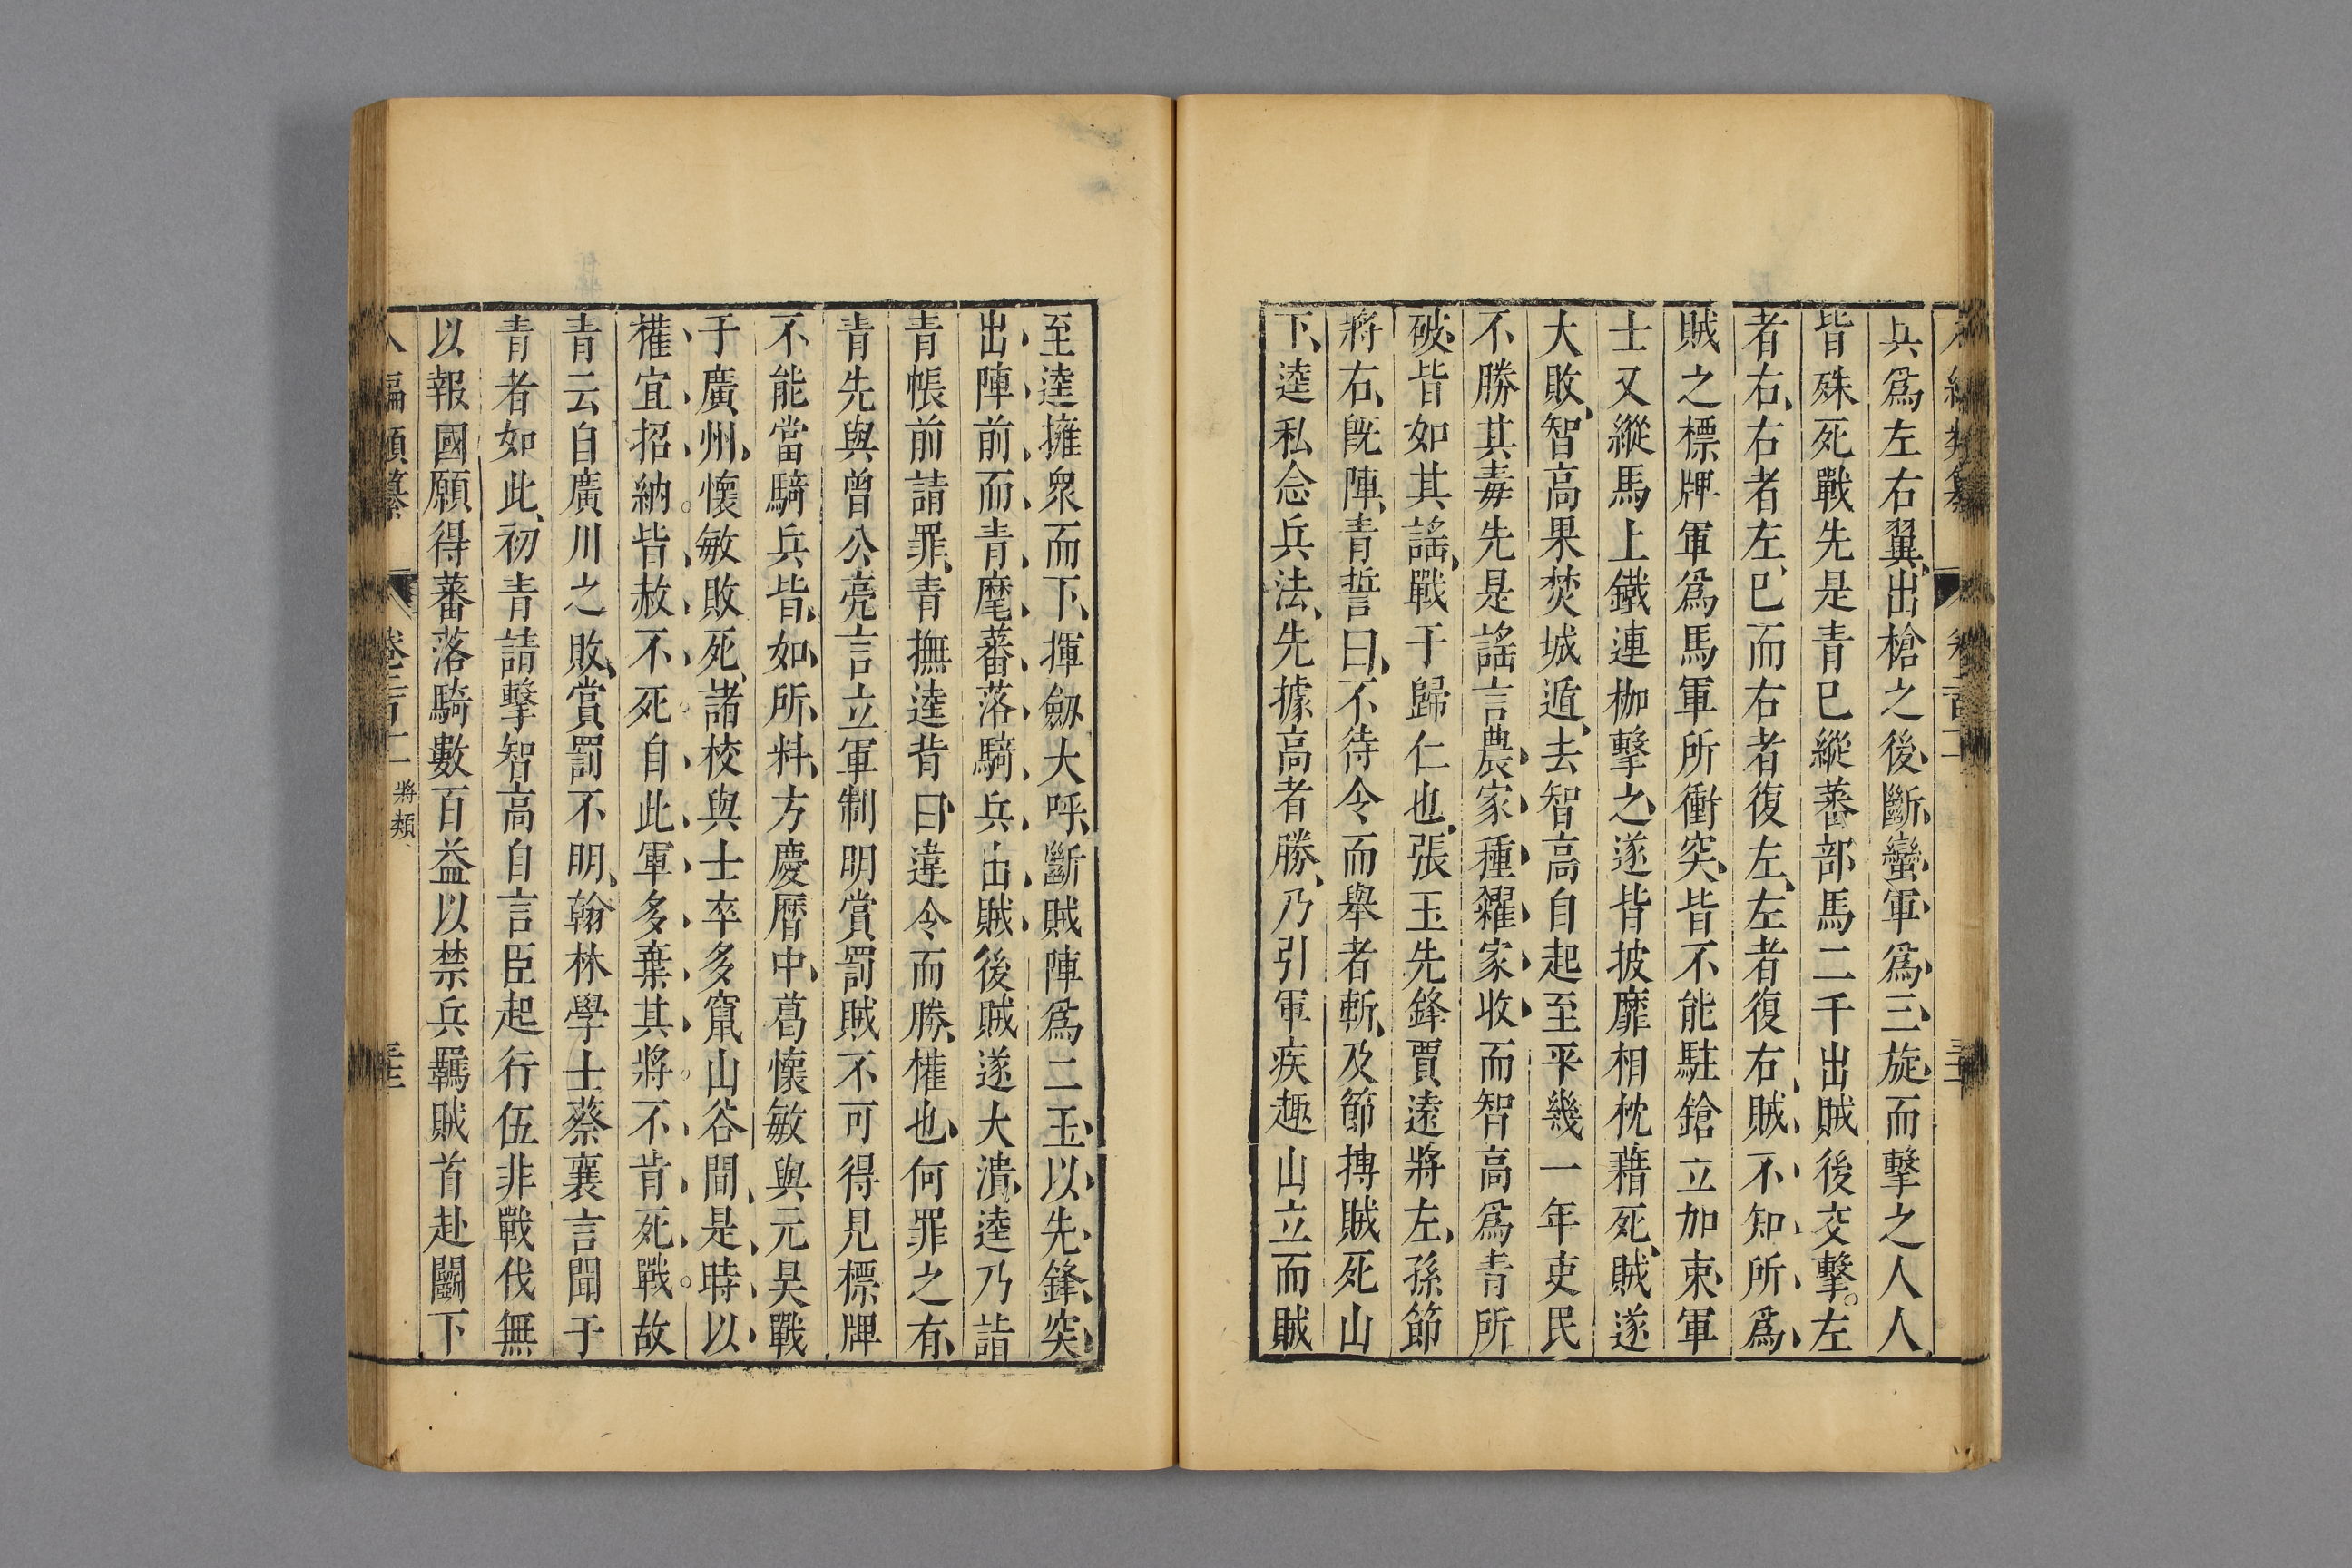 兵爲左右翼出槍之後斷蠻軍爲三旋而擊之人人
皆殊死戰先是青已縱蕃部馬二千出賊後交擊左
者右右者左已而右者復左左者復右賊不知所爲
賊之標牌軍爲馬軍所衝突皆不能駐鎗立加束軍
士又縱馬上鐵連枷擊之遂皆披靡相枕藉死賊遂
大敗智高果焚城遁去智高自起至平幾一年吏民
不勝其毒先是謠言農家種糴家收而智高爲青所
破皆如其謠戰于歸仁也張玉先鋒賈逵將左孫節
將右旣陣青誓曰不待令而舉者斬及節搏賊死山
下逵私念兵法先據高者勝乃引軍疾趣山立而賊
至逵擁眾而下揮劔大呼斷賊陣爲二玉以先鋒突
出陣前而青麾蕃落騎兵出賊後賊遂大潰逵乃詣
青帳前請罪青撫逵背曰違令而勝權也何罪之有
青先與曾公亮言立軍制明賞罰賊不可得見標牌
不能當騎兵皆如所料方慶曆中葛懷敏與元昊戰
于廣州懷敏敗死諸校與士卒多竄山谷間是時以
權宜招納皆赦不死自此軍多棄其將不肯死戰故
青云自廣川之敗賞罰不明翰林學士蔡襄言聞于
青者如此初青請擊智高自言臣起行伍非戰伐無
以報國願得蕃落騎數百益以禁兵羈賊首赴闕下
編類纂 卷二百十二 將類 三十三